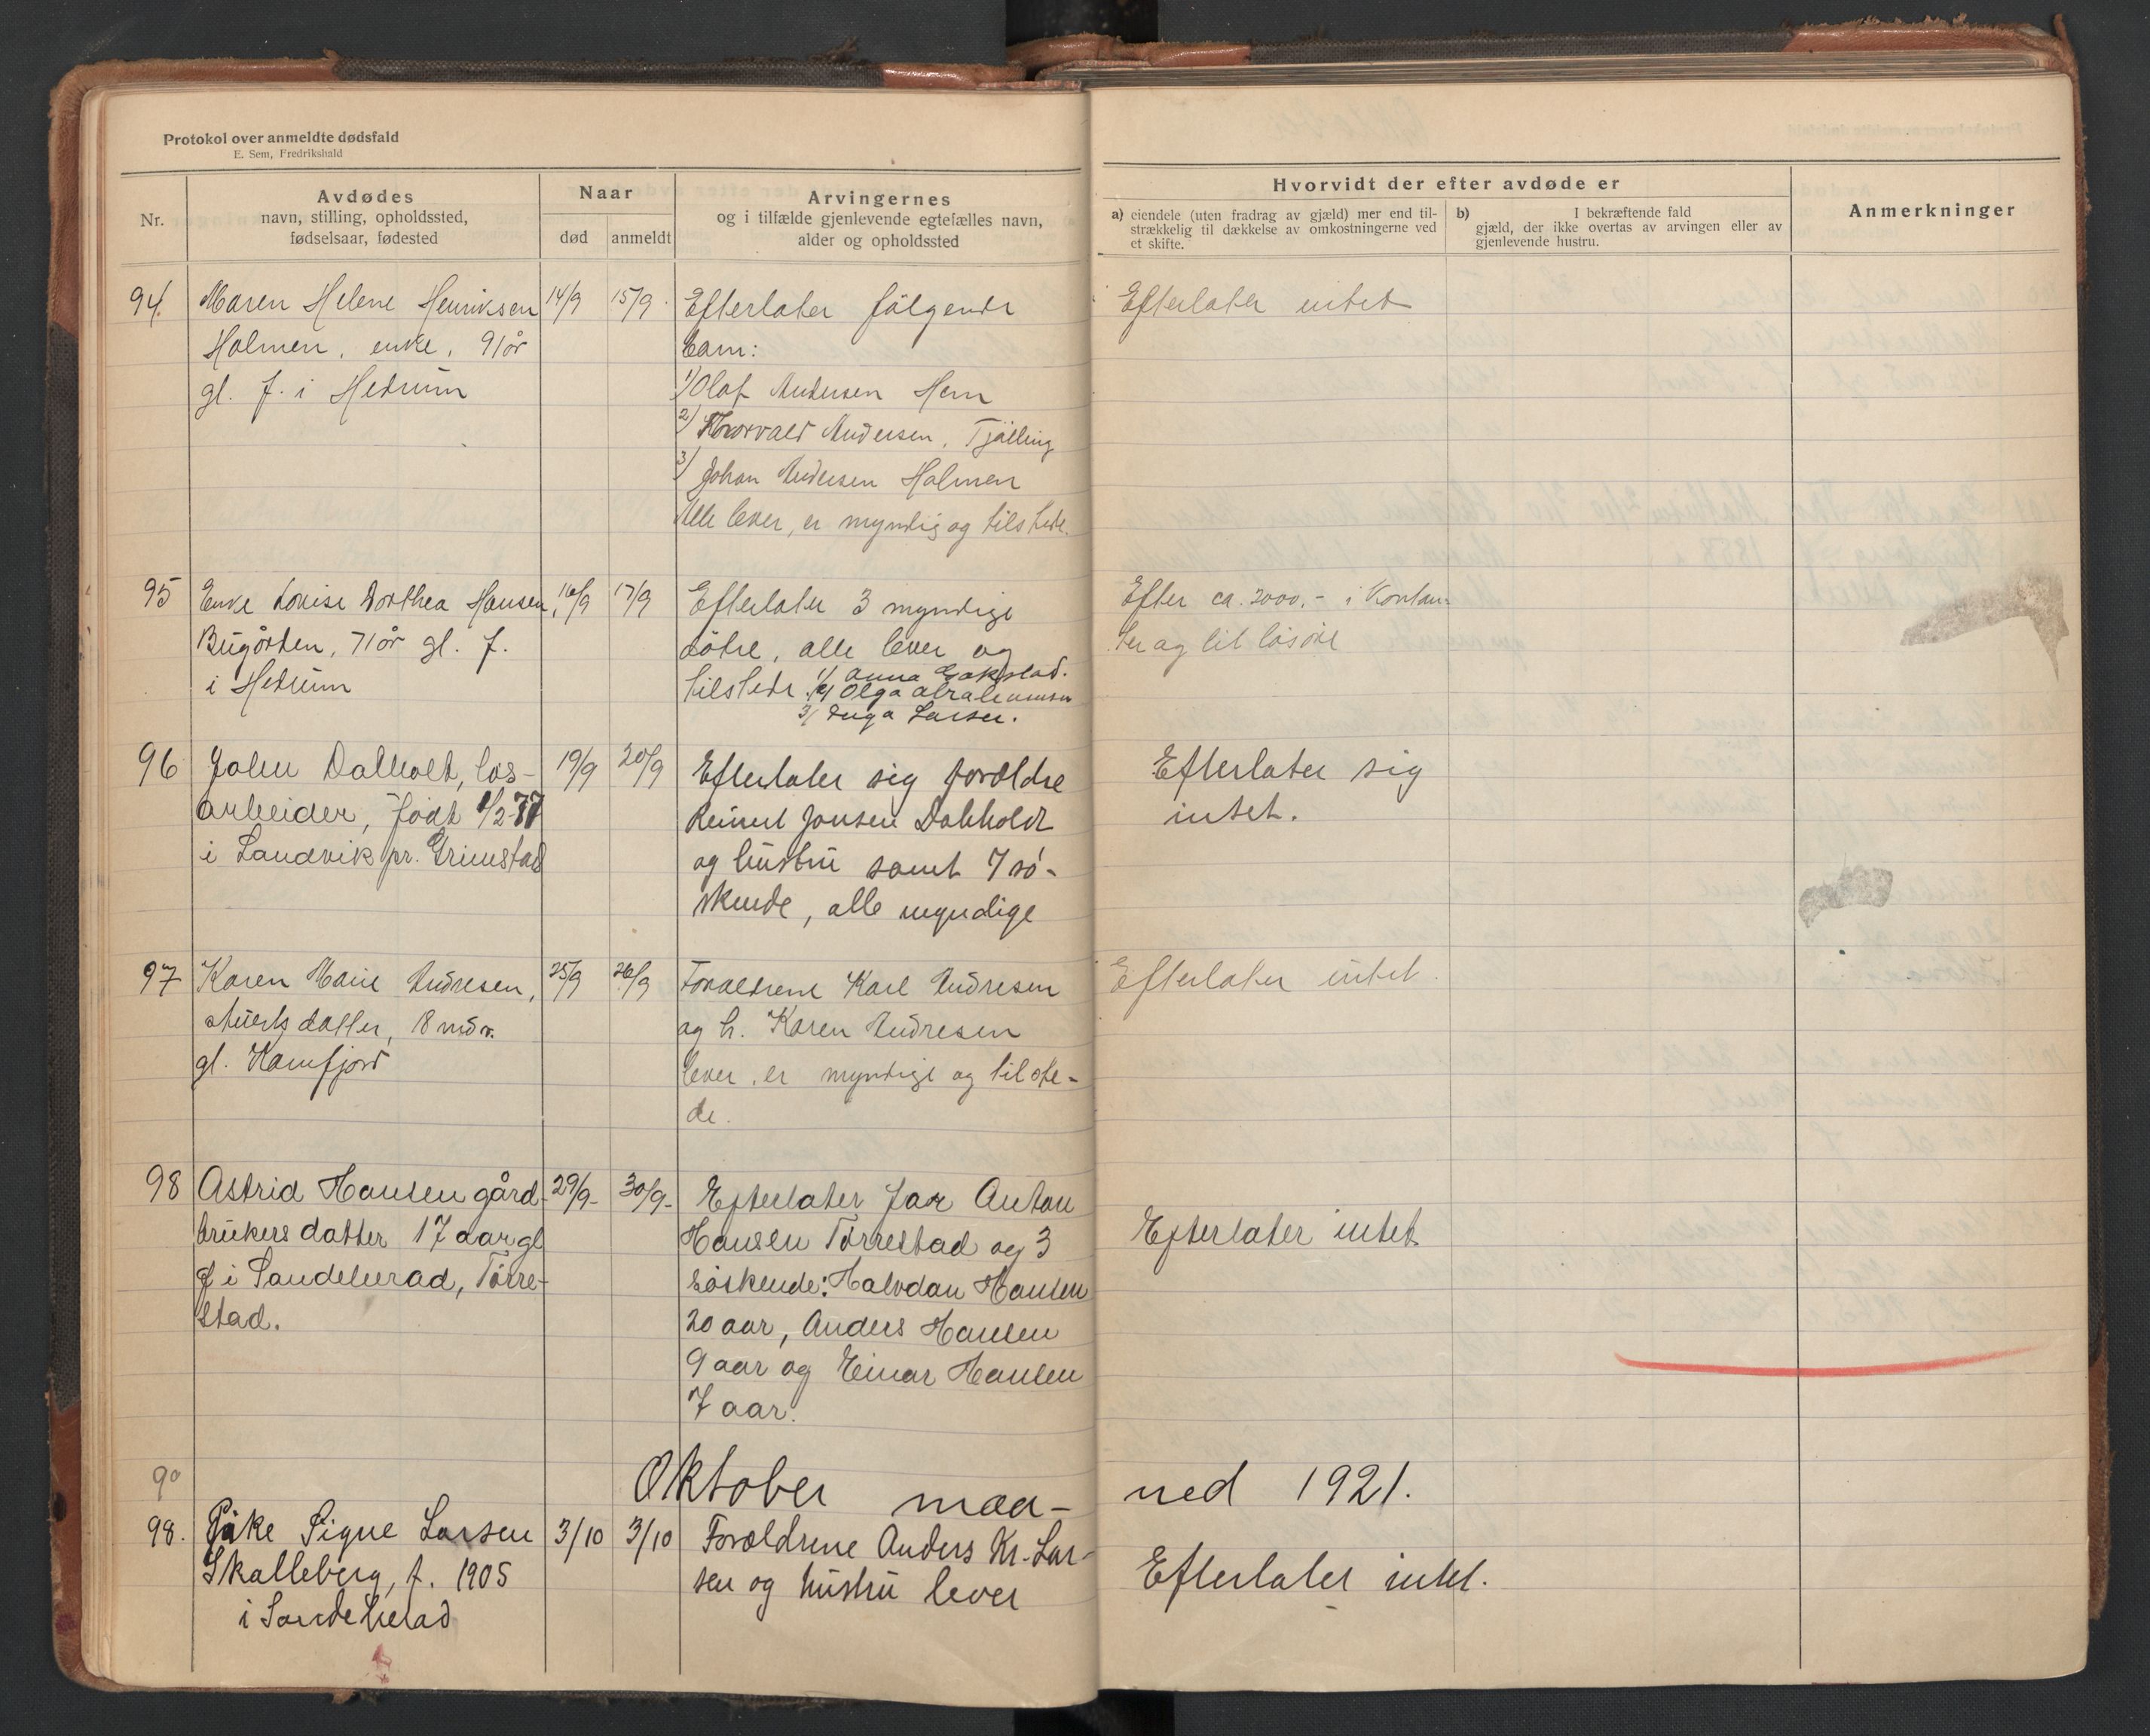 Protokol over anmeldte dødsfald
E. Sem, Fredrikshald
Nr.
Avdødes
navn, stilling, opholdssted,
fødselsaar, fødested
Naar
død
anmeldt
Arvingernes
og i tilfælde gjenlevende egtefælles navn,
alder og opholdssted
Hvorvidt der efter avdøde er
a) eiendele (uten fradrag av gjæld) mer end til-
strækkelig til dækkelse av omkostningerne ved
et skifte.
b) I bekræftende fald
gjæld, der ikke overtas av arvingen eller av
gjenlevende hustru.
Anmerkninger
94. Maren Helene Henriksen 14/9 15/9. Efterlater følgende Efterlater intet
Holmen, enke, 91 år barn:
gl. f. i Hedrum 1/ Olaf Andersen Hem
2/ Thorvald Andersen, Tjølling
3/ Johan Andersen Holmen
Alle lever, er myndig og tilstede.
95 Enke Lovise Dorthea Hansen, 16/9 17/9 Efterlater 3 myndige Efter ca. 2000.- i Kontan-
Bugården, 71 år gl. f. døtre, alle lever og ter og lit løsøre
i Hedrum tilstede. 1/ Anna Gokstad.
2/ Olga Abrahamsen
3/ Inga Larsen.
96 John Dalholt, løs- 19/9 20/9 Efterlater sig forældre Efterlater sig
arbeider, født 1/2-77 Reinert Jonsen Dalholdt intet.
i Landvik pr. Grimstad og hustru samt 7 sø-
skende, alle myndige
97 Karen Marie Andresen, 25/9 26/9 Forældrene Karl Andresen Efterlater intet
datter, 18 mdr. og h. Karen Andresen
gl. Kamfjord lever, er myndige og tilste-
de.
98 Astrid Hansen gård- 29/9- 30/9- Efterlater far Anton
brukers datter 17 aar gl Hansen Tørrestad og 3 Efterlater intet
f i Sandeherad, Tørre- søskende: Halvdan Hansen
stad. 20 aar, Anders Hansen
9 aar og Einar Hansen
7 aar.
90 Oktober maa- ned 1921.
98. Pike Signe Larsen 3/10 3/10 Forældrene Anders Kr. Lar-
Skalleberg, f. 1905 sen og hustru lever Efterlater intet.
i Sandeherad